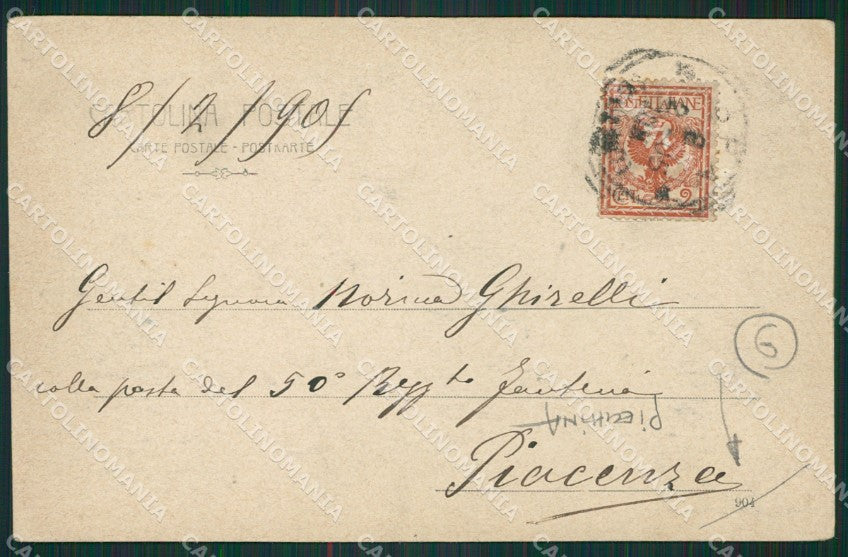 CARTOLINA POSTALE
CARTE POSTALE - POSTKARTE
8/2/905
POSTE ITALIANE
2
Gentil Signora Norina Ghizelli
colla posta del 50° Reggto Fanteria
Piacenza
6
904
CARTOLINOMANIA